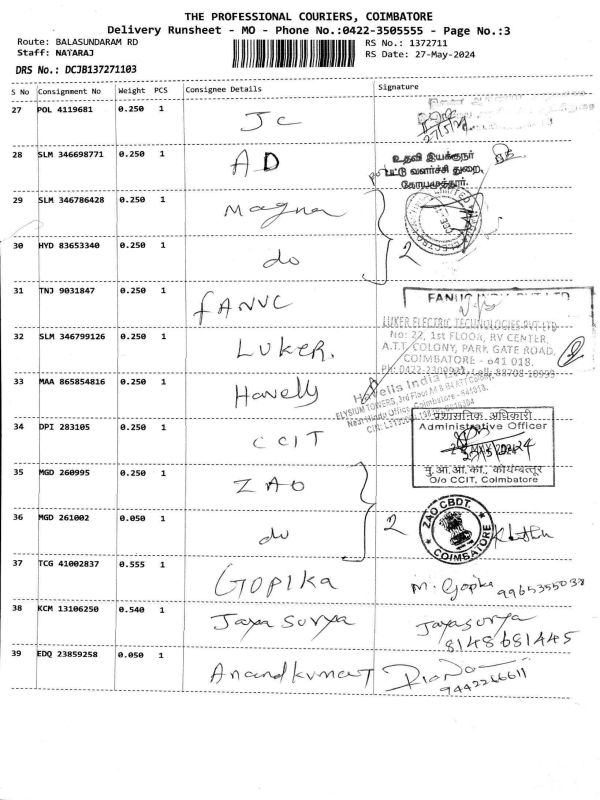 THE PROFESSIONAL COURIERS, COIMBATORE
Delivery Runsheet - MO - Phone No.:0422-3505555 - Page No.:3
Route: BALASUNDARAM RD
RS No.: 1372711
Staff: NATARAJ
RS Date: 27-May-2024
DRS No.: DCJB137271103
S No Consignment No Weight PCS Consignee Details Signature
27 POL 4119681 0.250 1 JC
28 SLM 346698771 0.250 1 AD
உதவி இயக்குநர்
பட்டு வளர்ச்சி துறை,
கோயமுத்தூர்.
29 SLM 346786428 0.250 1 Magna
30 HYD 83653340 0.250 1 do 2
31 TNJ 9031847 0.250 1 fANUC
FANUC INDIA PVT LTD
32 SLM 346799126 0.250 1 LUKER.
LUKER ELECTRIC TECHNOLOGIES PVT LTD
No: 22, 1st FLOOR, RV CENTER,
A.T.T. COLONY, PARK GATE ROAD,
COIMBATORE - 641 018.
33 MAA 865854816 0.250 1 Havells
Havells India Ltd
ELYSIUM TOWERS, 3rd Floor
34 DPI 283105 0.250 1 CCIT
प्रशासनिक अधिकारी
Administrative Officer
मु.आ.आ.का., कोयम्बत्तूर
O/o CCIT, Coimbatore
35 MGD 260995 0.250 1 ZAO
36 MGD 261002 0.050 1 do 2
ZAO CBDT.
COIMBATORE
37 TCG 41002837 0.555 1 GOPIKA M. Gopika 9965355038
38 KCM 13106250 0.540 1 Jaya Surya Jayasurya
8148681445
39 EDQ 23859258 0.050 1 Anandkumar
9442266611